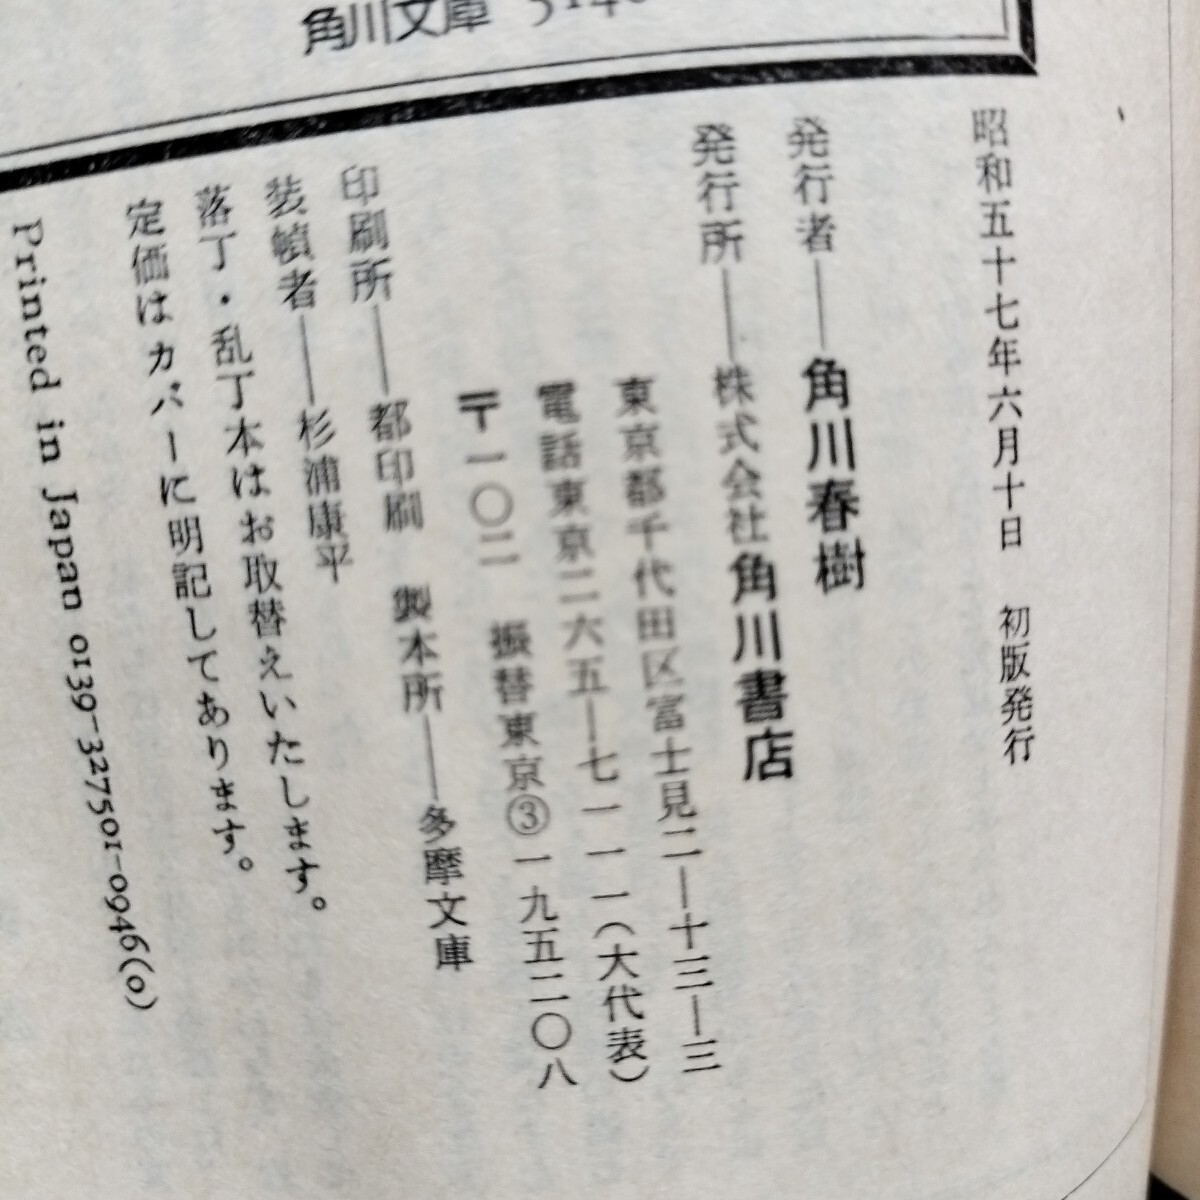 角川文庫
昭和五十七年六月十日　初版発行
発行者――角川春樹
発行所――株式会社角川書店
東京都千代田区富士見二―十三―三
電話東京二六五―七一一一（大代表）
〒一〇二　振替東京③一九五二〇八
印刷所――都印刷　製本所――多摩文庫
装幀者――杉浦康平
落丁・乱丁本はお取替えいたします。
定価はカバーに明記してあります。
Printed in Japan 0139-327501-0946(0)